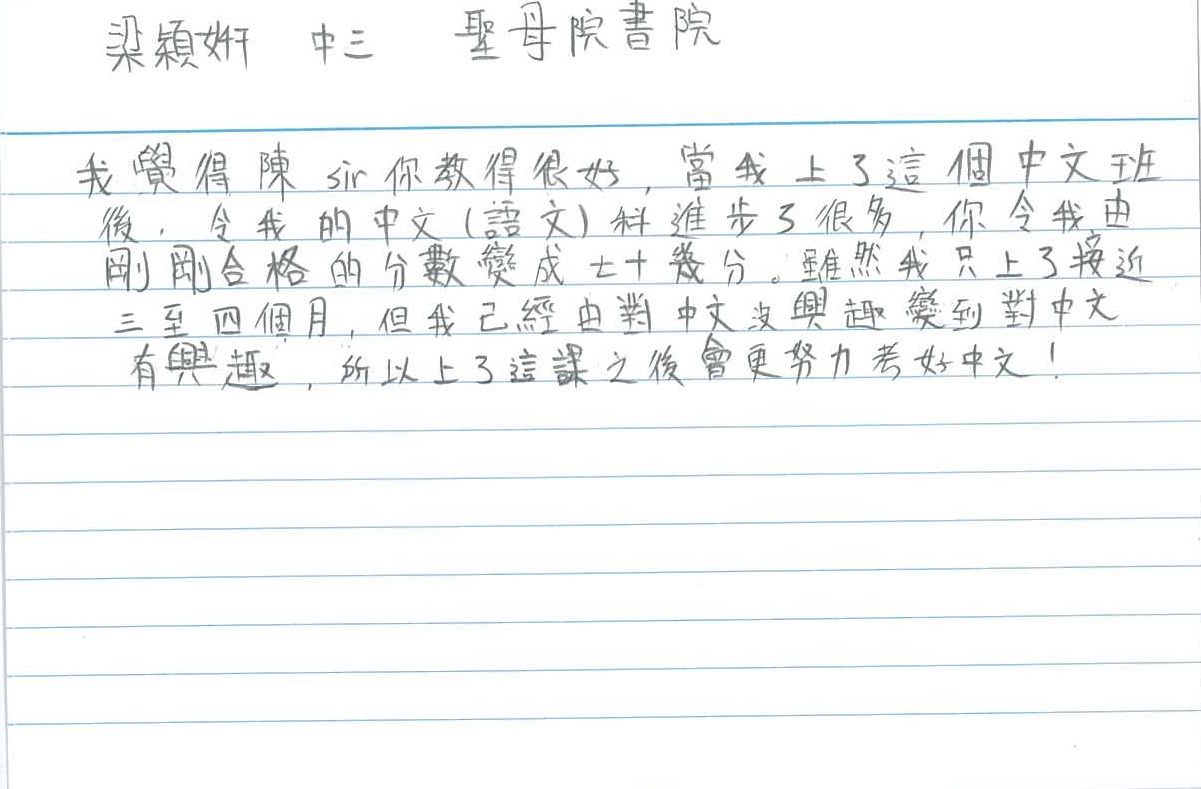 梁穎妍 中三 聖母院書院
我覺得陳sir你教得很好,當我上了這個中文班
後,令我的中文(語文)科進步了很多,你令我由
剛剛合格的分數變成七十幾分。雖然我只上了接近
三至四個月,但我已經由對中文沒興趣變到對中文
有興趣,所以上了這課之後會更努力考好中文!